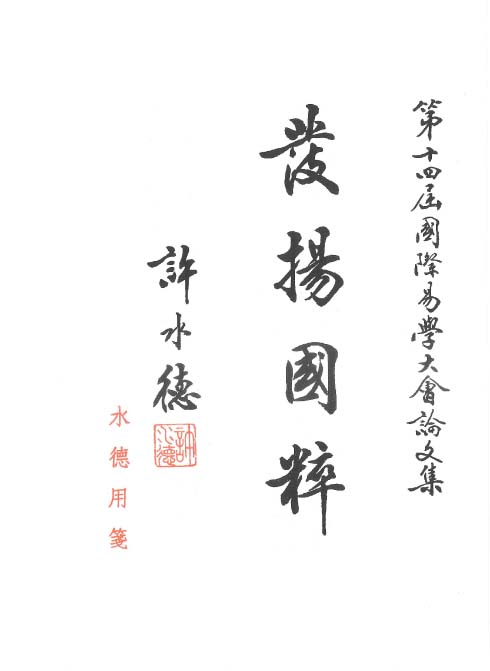 第十四屆國際易學大會論文集
發揚國粹
許水德
許水德
水德用箋